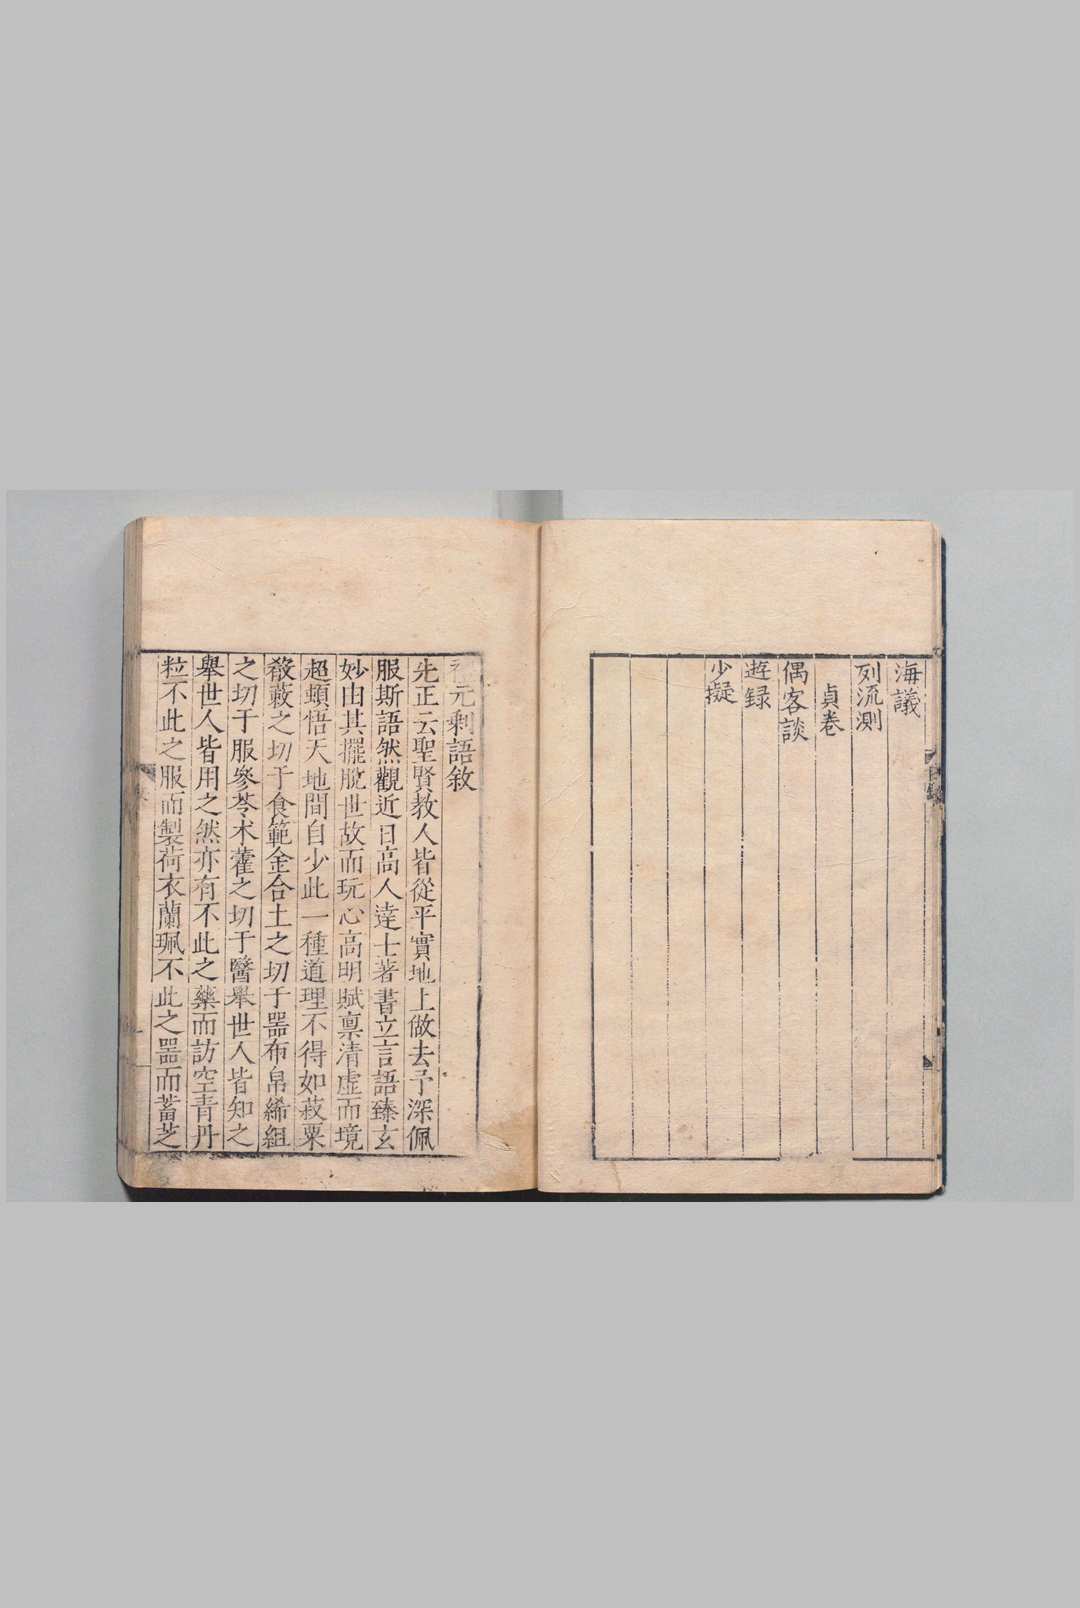 海議
列流測
貞卷
偶客談
遊録
少擬
元剩語敘
先正云聖賢教人皆從平實地上做去予深佩
服斯語然觀近日高人達士著書立言語臻玄
妙由其擺脫世故而玩心高明賦稟清虛而境
超頓悟天地間自少此一種道理不得如菽粟
殽蔌之切于食範金合土之切于器布帛絺組
之切于服參苓术藿之切于醫舉世人皆知之
舉世人皆用之然亦有不此之藥而訪空青丹
粒不此之服而製荷衣蘭珮不此之器而蓄芝